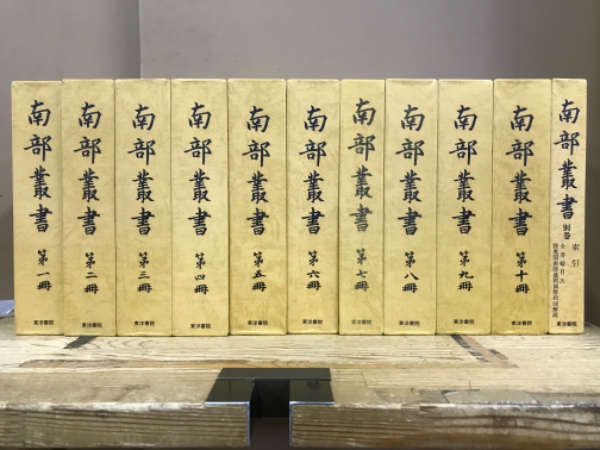 南部叢書
第一冊
東洋書院
南部叢書
第二冊
東洋書院
南部叢書
第三冊
東洋書院
南部叢書
第四冊
東洋書院
南部叢書
第五冊
東洋書院
南部叢書
第六冊
東洋書院
南部叢書
第七冊
東洋書院
南部叢書
第八冊
東洋書院
南部叢書
第九冊
東洋書院
南部叢書
第十冊
東洋書院
南部叢書
別巻
索引
全巻総目次
東洋書院